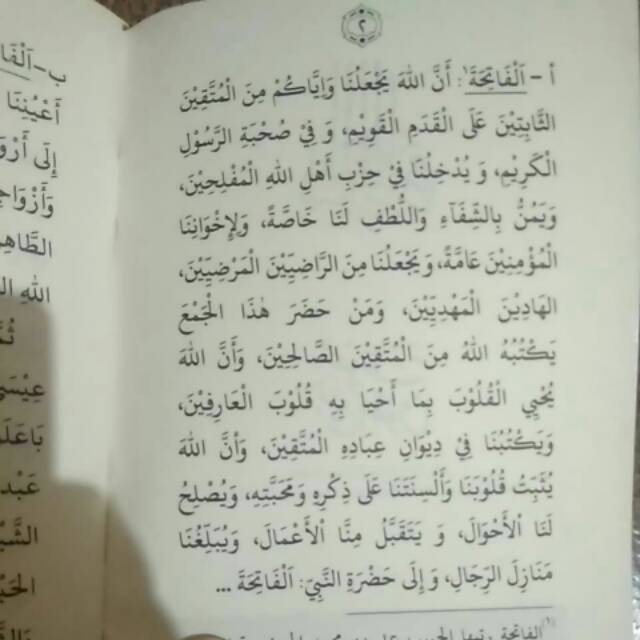 ٢
أ - اَلْفَاتِحَةَ (١) أَنَّ اللهَ يَجْعَلُنَا وَإِيَّاكُمْ مِنَ الْمُتَّقِيْنَ
الثَّابِتِيْنَ عَلَى الْقَدَمِ الْقَوِيْمِ، وَفِي صُحْبَةِ الرَّسُوْلِ
الْكَرِيْمِ، وَيُدْخِلُنَا فِي حِزْبِ أَهْلِ اللهِ الْمُفْلِحِيْنَ،
وَيَمُنُّ بِالشِّفَآءِ وَاللُّطْفِ لَنَا خَاصَّةً، وَلِإِخْوَانِنَا
الْمُؤْمِنِيْنَ عَامَّةً، وَيَجْعَلُنَا مِنَ الرَّاضِيِّيْنَ الْمَرْضِيِّيْنَ،
الْهَادِيْنَ الْمَهْدِيِّيْنَ، وَمَنْ حَضَرَ هٰذَا الْجَمْعَ
يَكْتُبُهُ اللهُ مِنَ الْمُتَّقِيْنَ الصَّالِحِيْنَ، وَأَنَّ اللهَ
يُحْيِي الْقُلُوْبَ بِمَا أَحْيَا بِهِ قُلُوْبَ الْعَارِفِيْنَ،
وَيَكْتُبُنَا فِي دِيْوَانِ عِبَادِهِ الْمُتَّقِيْنَ، وَأَنَّ اللهَ
يُثَبِّتُ قُلُوْبَنَا وَأَلْسِنَتَنَا عَلَى ذِكْرِهِ وَمَحَبَّتِهِ، وَيُصْلِحُ
لَنَا الْأَحْوَالَ، وَيَتَقَبَّلُ مِنَّا الْأَعْمَالَ، وَيُبَلِّغُنَا
مَنَازِلَ الرِّجَالِ، وَإِلَى حَضْرَةِ النَّبِيِّ: اَلْفَاتِحَةَ ...
ب - اَلْفَا
أَعْيُنِنَا
إِلَى أَرْوَ
وَأَزْوَاجِ
الطَّاهِرِ
اللهِ
عِيْسَى
بَاعَلَ
عَبْدِ